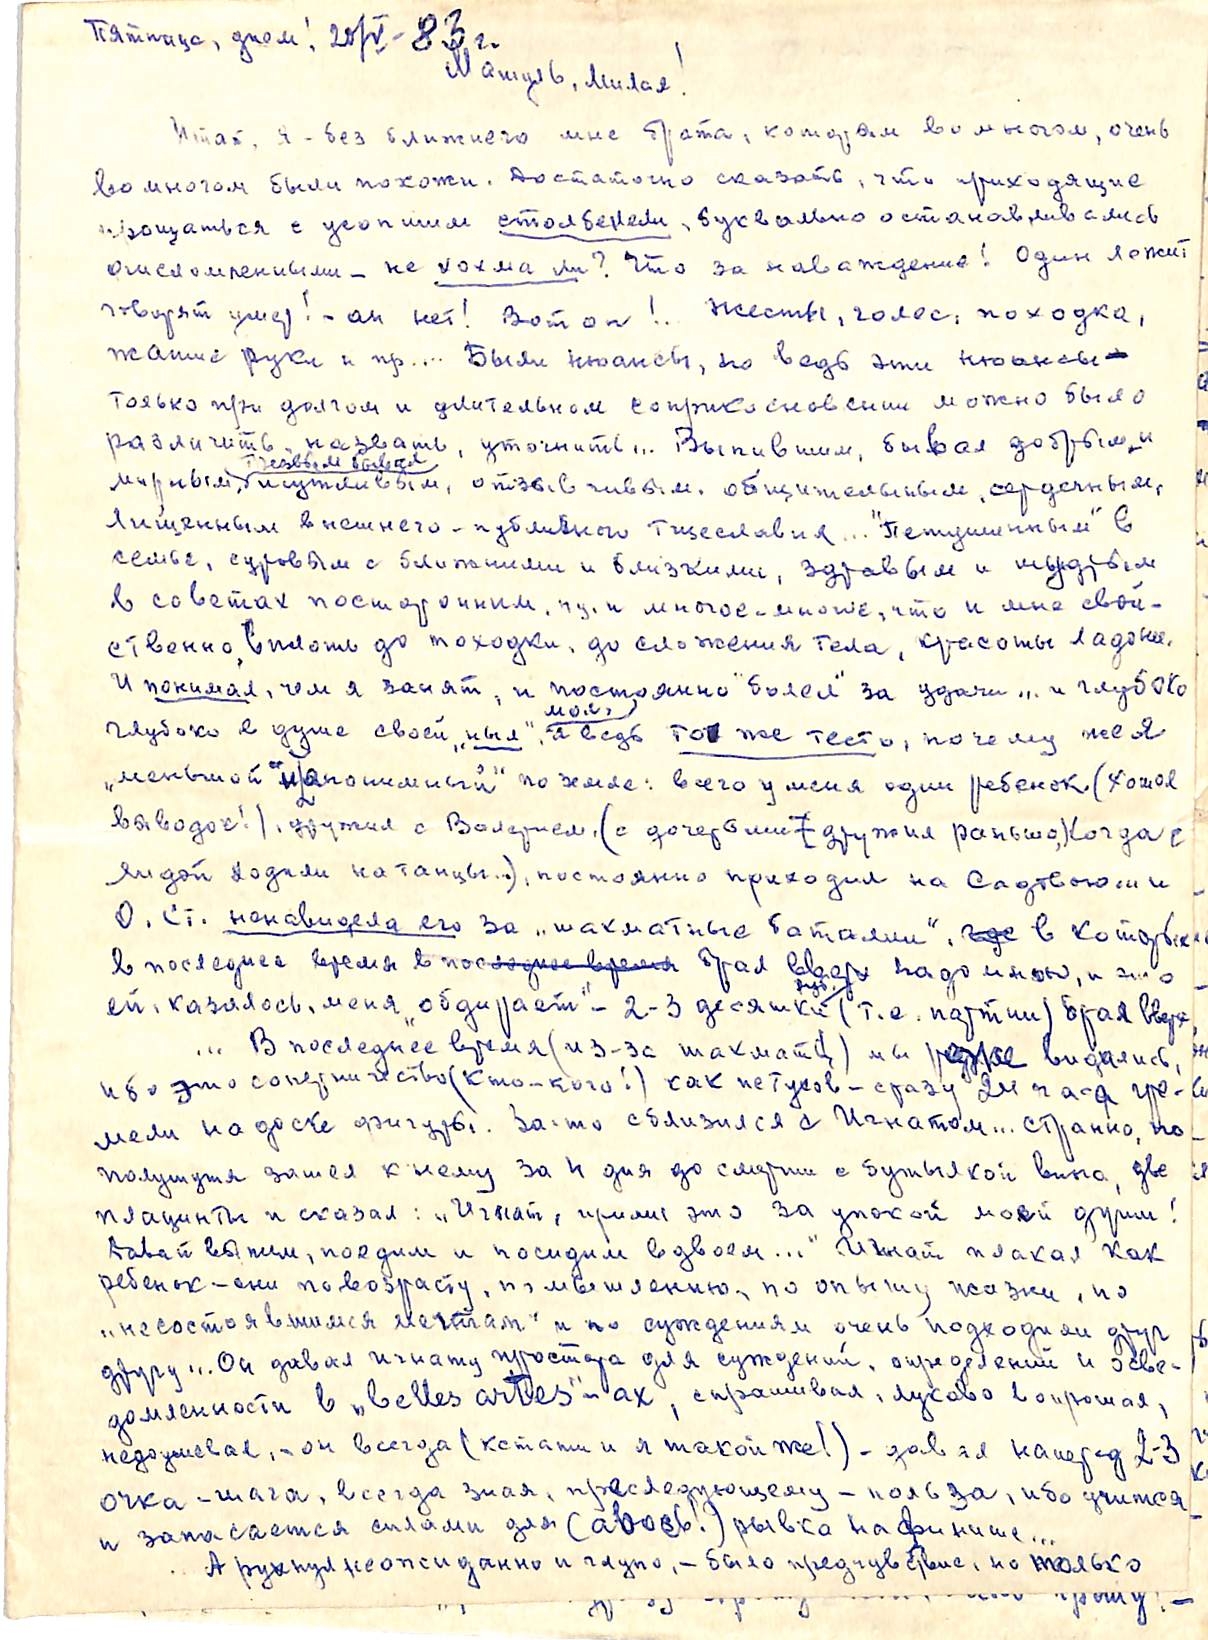 Пятница, днем! 20/V-83 г.
Мамуль, милая!
Итак, я - без ближнего мне брата, которым во многом, очень
во многом были похожи. Достаточно сказать, что приходящие
прощаться с усопшим столбенели, буквально останавливались
ошеломленными - не хохма ли? Что за наваждение! Один лежит
говорят умер! - ан нет! Вот он!.. Жесты, голос, походка,
жатие руки и пр.... Были нюансы, но ведь эти нюансы -
только при долгом и длительном соприкосновении можно было
различить, назвать, уточнить... Выпившим, бывал добрым и
мирным, трезвым бывал услужливым, отзывчивым, общительным, сердечным,
лишенным внешнего - публичного тщеславия... "Петушинным" в
семье, суровым с ближними и близкими, здравым и мудрым
в советах посторонним, ну, и многое-многое, что и мне свой-
ственно, вплоть до походки, до сложения тела, красоты ладони.
И понимал, чем я занят, и постоянно "болел" за удачи... и глубоко
глубоко в душе своей "ныл", мол, я ведь то же тесто, почему же я
"меньшой" по земле: всего у меня один ребенок (хотел
выводок!), дружил с Валерием, (с дочерьми дружил раньше, когда с
Лидой ходили на танцы..), постоянно приходил на Садовую и
О. Ст. ненавидела его за "шахматные баталии", в которых
в последнее время брал вверх надо мною, и это
ей, казалось, меня "обдирает" - 2-3 десятки руб. (т.е. партии) брал вверх,
... В последнее время (из-за шахмат!) мы реже видались,
ибо это соперничество (кто-кого!) как петухов - сразу 24 часа гре-
мели на доске фигуры. За-то сблизился с Игнатом... странно, но
полушутя зашел к нему за 4 дня до смерти с бутылкой вина, две
плацинты и сказал: "Игнат, прими это за упокой моей души!
Давай выпьем, поедим и посидим вдвоем..." Игнат плакал как
ребенок - они по возрасту, по мышлению, по опыту жизни, по
"несостоявшимся мечтам" и по суждениям очень подходили друг
другу... Он давал Игнату простора для суждений, определений и осве-
домленности в "belles artes"-ах, спрашивал, лукаво вопрошал,
недоумевал, - он всегда (кстати и я такой же!) - давал наперед 2-3
очка - шага, всегда зная, преследующему - польза, ибо учится
и запасается силами для (авось!) рывка на финише...
А рухнул неожиданно и глупо, - было предчувствие, но только